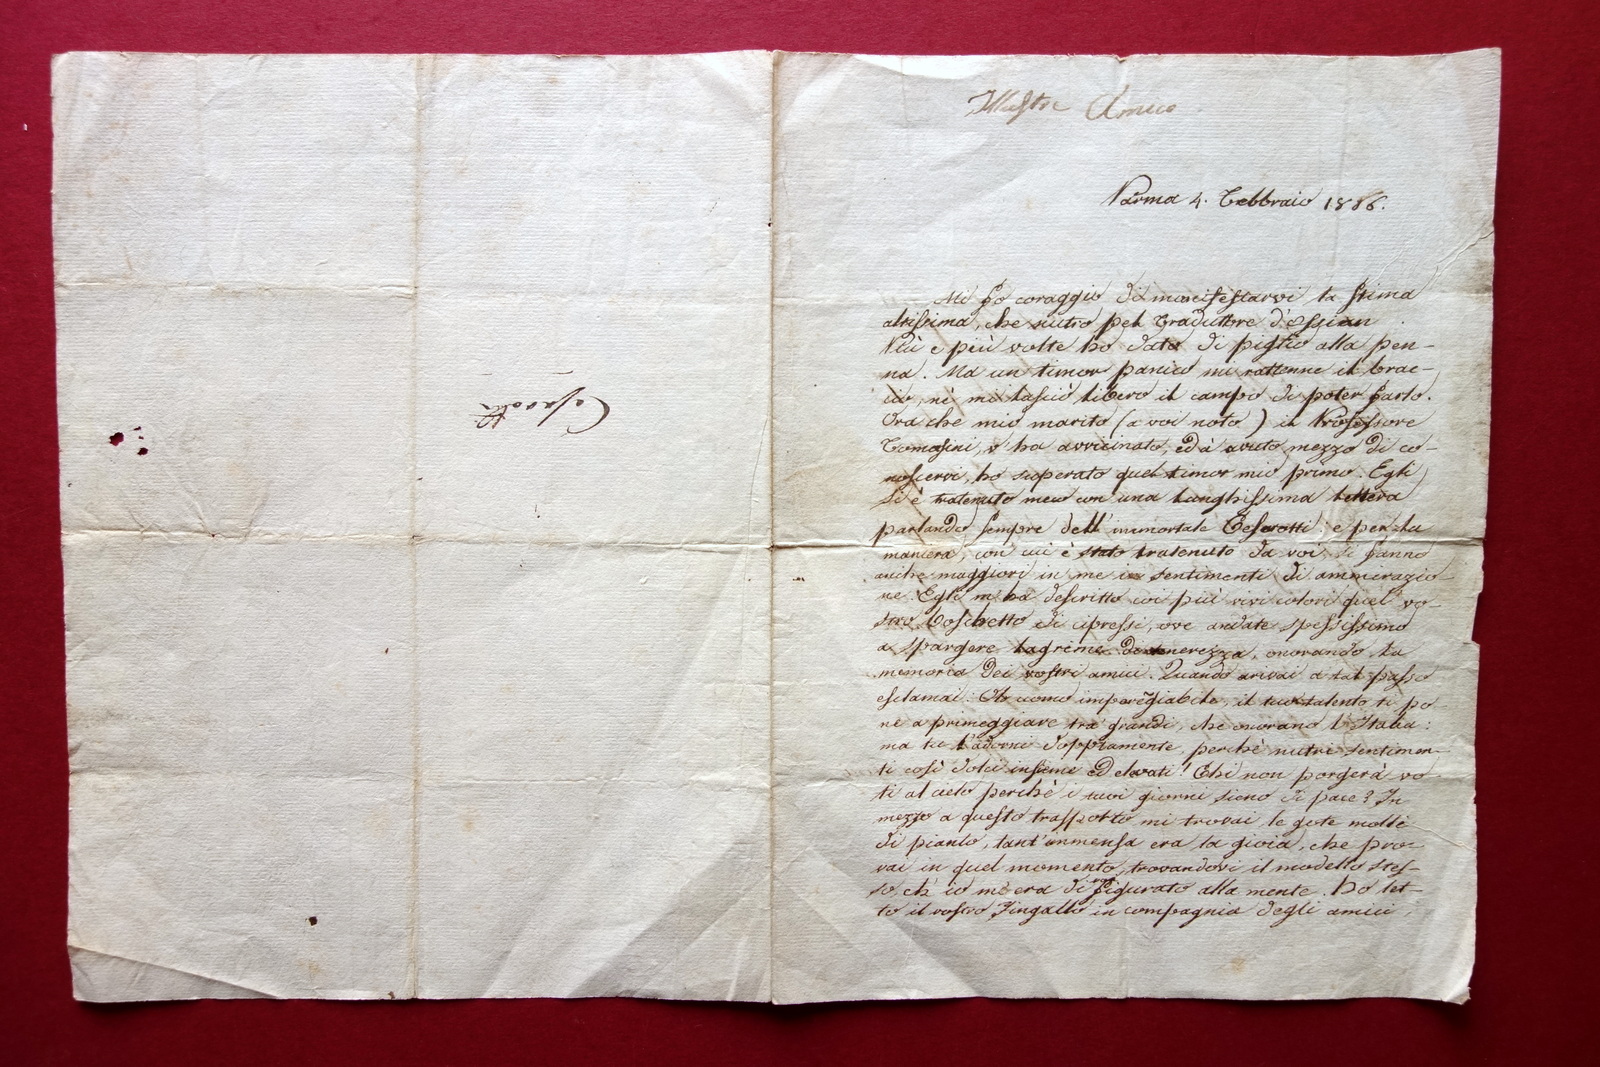 Cesarotti
Illustre Amico
Parma 4. Febbraio 1806.
Mi fo coraggio di manifestarvi la stima
altissima, che nutro pel traduttore d'Ossian
Più e più volte ho dato di piglio alla pen-
na. Ma un timor panico mi rattenne il brac-
cio, nè mi lasciò libero il campo di poter farlo.
Ora che mio marito (a voi noto) il Professore
Tomasini, v'ha avvicinato, ed à avuto mezzo di co-
noscervi, ho superato quel timor mio primo. Egli
si è tratenuto meco con una lunghissima lettera
parlando sempre dell'immortale Cesarotti: e per la
maniera, con cui è stato tratenuto da voi, si fanno
anche maggiori in me i sentimenti di ammirazio-
ne. Egli m'ha descritto coi più vivi colori quel vo-
stro boschetto di cipressi, ove andate spessissimo
a spargere lagrime di tenerezza, onorando la
memoria dei vostri amici. Quando arivai a tal passo
esclamai: Oh uomo impareggiabile, il tuo talento ti po-
ne a primeggiare tra' grandi, che onorano l'Italia:
ma tu l'adorni doppiamente, perchè nutri sentimen-
ti così dolci insieme ed elevati! Chi non porgerà vo-
ti al cielo perchè i tuoi giorni sieno di pace? In
mezzo a questo trasporto mi trovai le gote molli
di pianto, tant'immensa era la gioia, che pro-
vai in quel momento, trovandovi il modello stes-
so ch'io m'era di voi figurato alla mente. Ho let-
to il vostro Fingallo in compagnia degli amici,